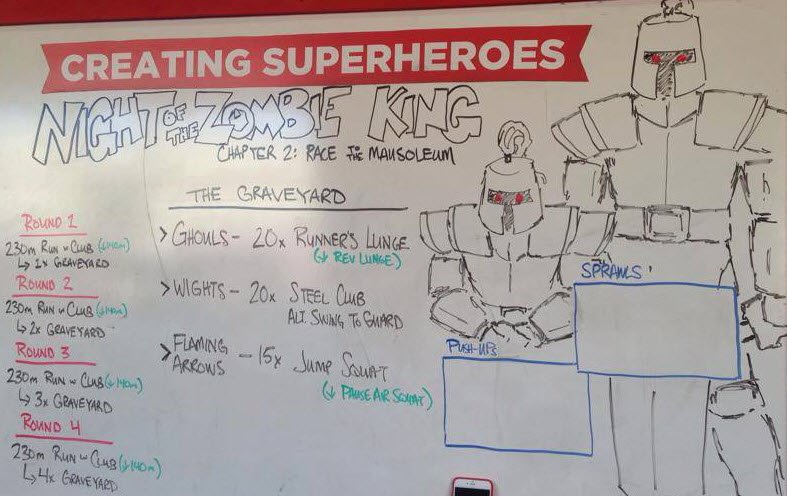 CREATING SUPERHEROES
NIGHT OF THE ZOMBIE KING
CHAPTER 2: RACE TO THE MAUSOLEUM
THE GRAVEYARD
> GHOULS - 20x RUNNER'S LUNGE
(↓ REV LUNGE)
> WIGHTS - 20x STEEL CLUB
ALT. SWING TO GUARD
> FLAMING ARROWS - 15x JUMP SQUAT
(↓ PAUSE AIR SQUAT)
ROUND 1
230m RUN w CLUB (↓140m)
↳ 1x GRAVEYARD
ROUND 2
230m RUN w CLUB (↓140m)
↳ 2x GRAVEYARD
ROUND 3
230m RUN w CLUB (↓140m)
↳ 3x GRAVEYARD
ROUND 4
230m RUN w CLUB (↓140m)
↳ 4x GRAVEYARD
PUSH-UPS
SPRAWLS